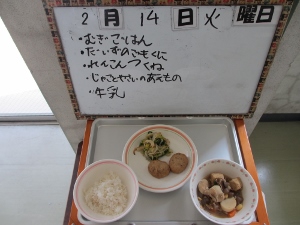 2月14日火曜日
・むぎごはん
・だいずのごもくに
・れんこんつくね
・じゃことやさいのあえもの
・牛乳